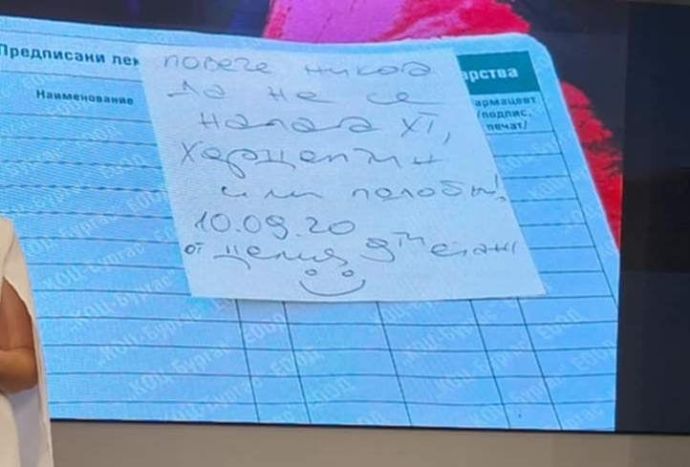 Предписани лек
арства
Наименование
армацевт
/подпис,
печат/
повече никога
да не се
налага ХТ,
Херцептин
или подобни!
10.09.20
от целия 9ти етаж
КОЦ-Бургас ЕООД